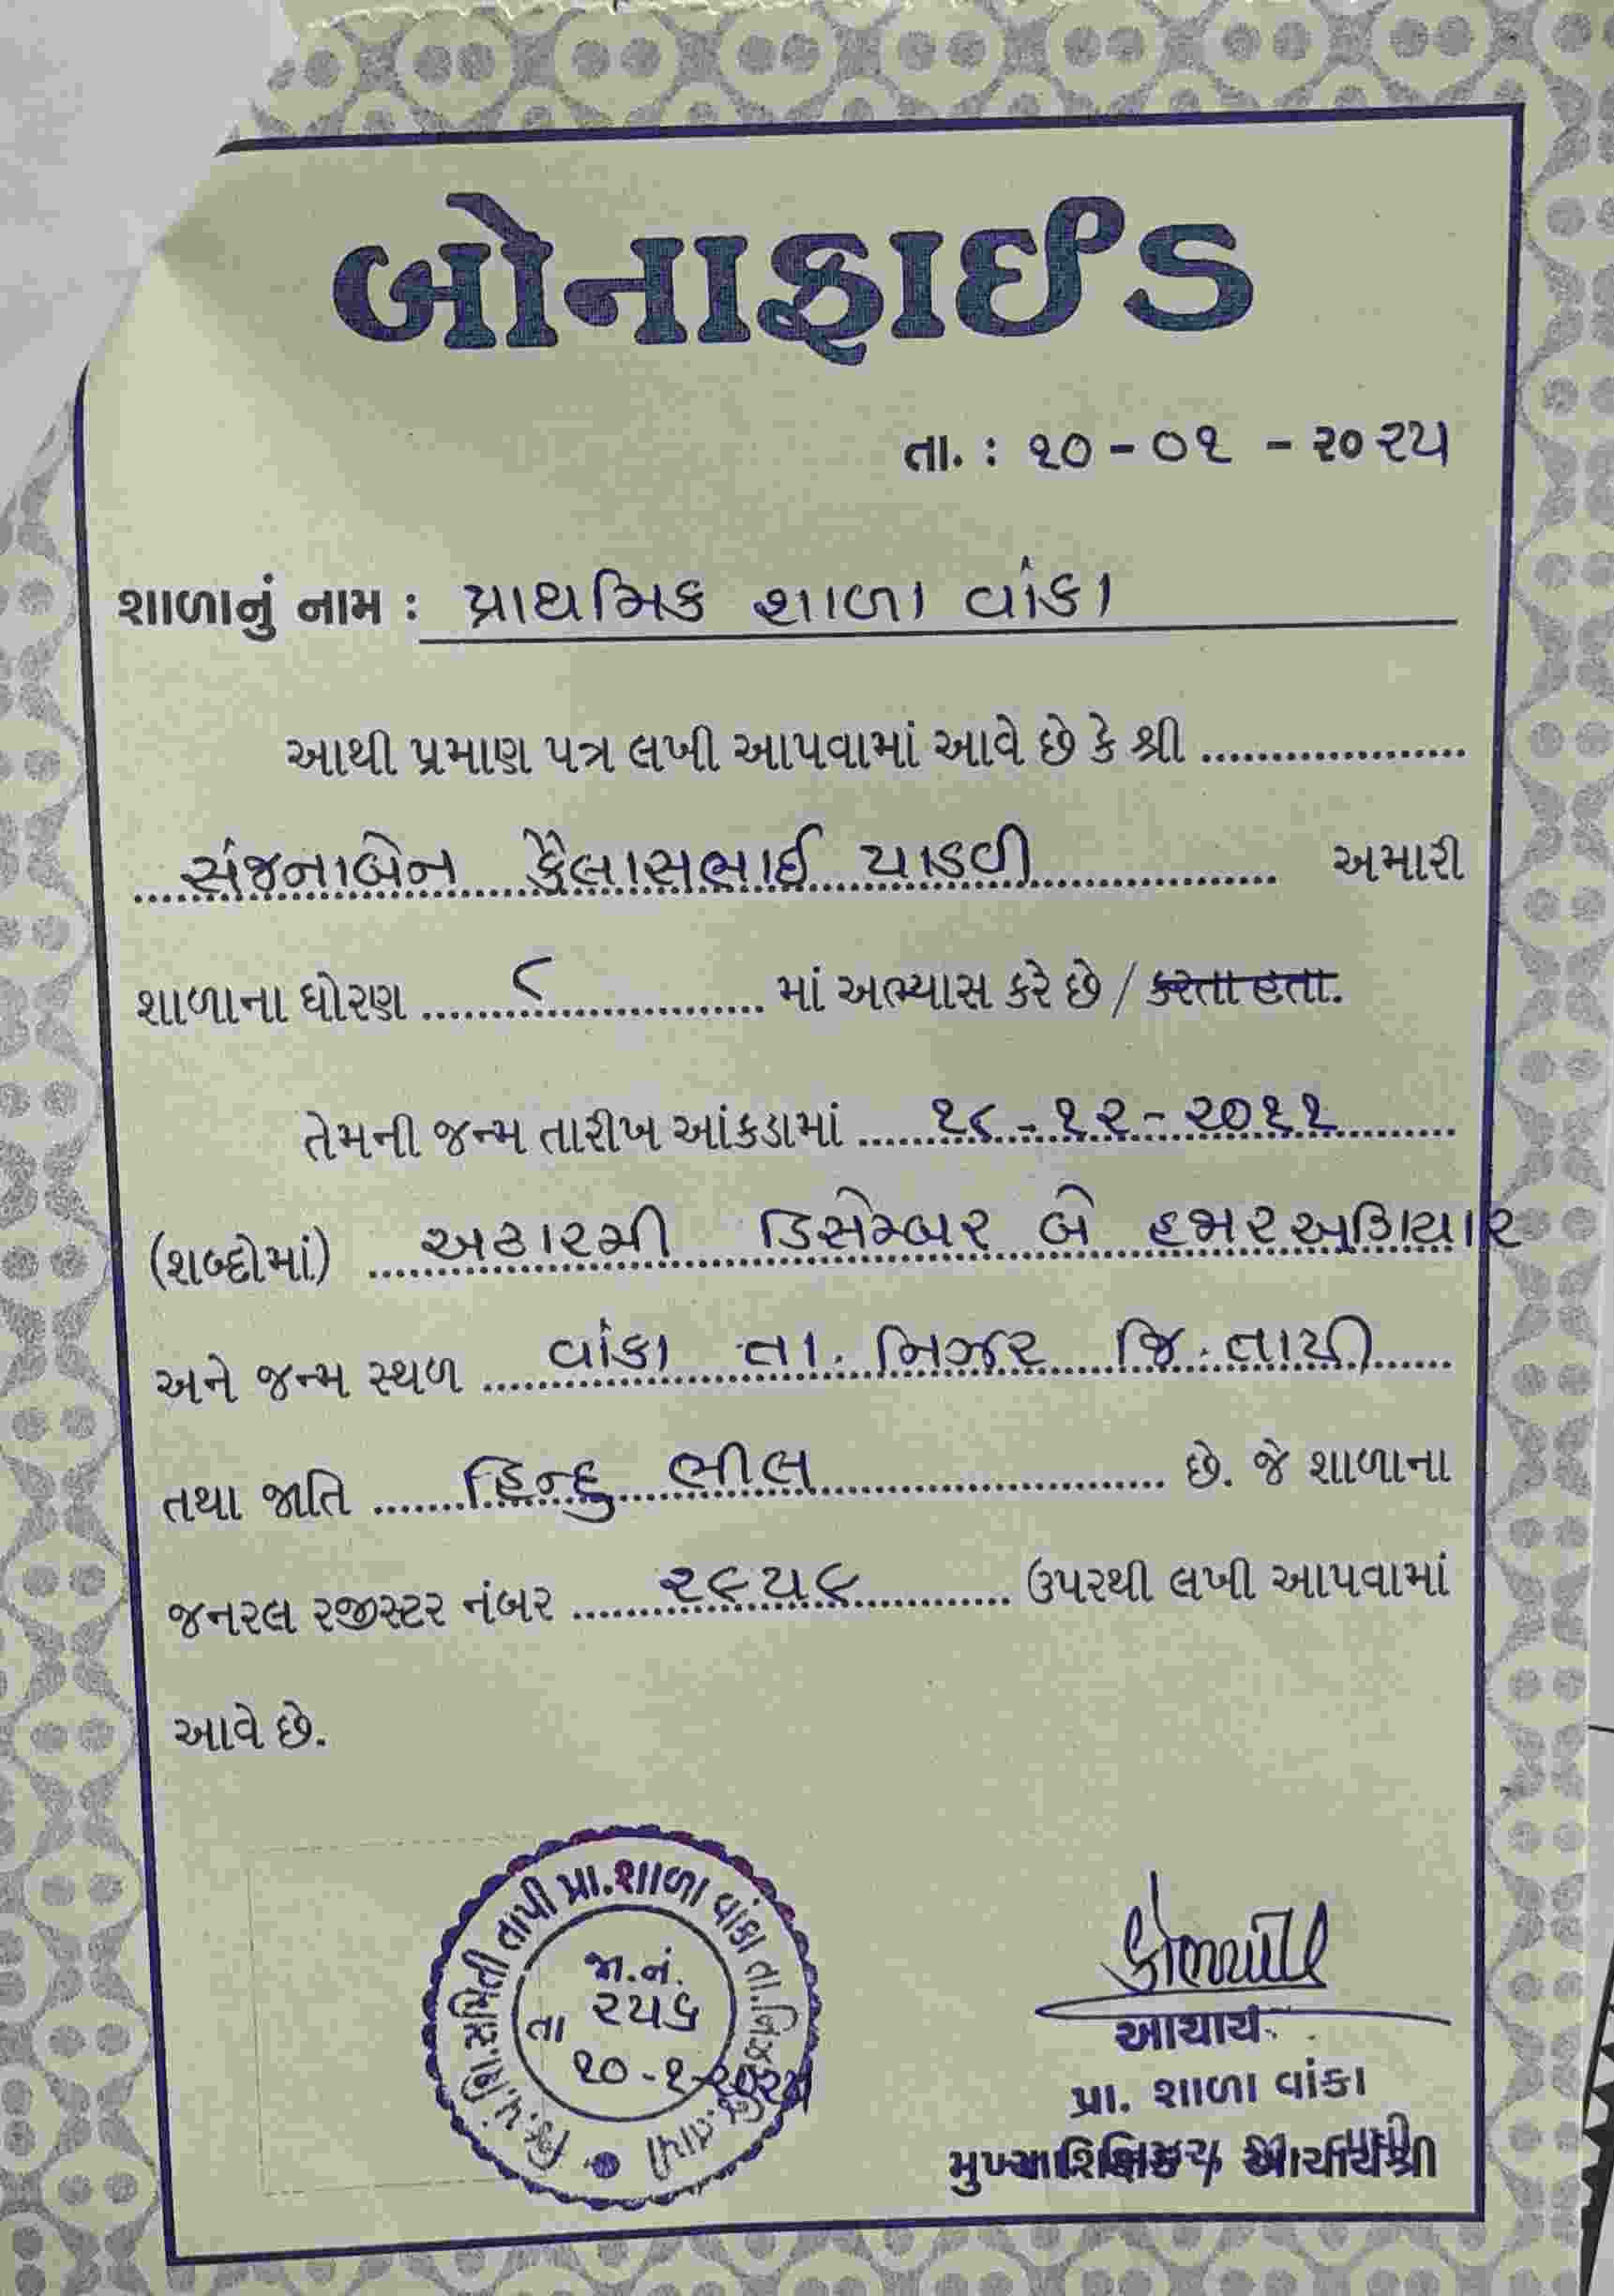 બોનાફાઈડ
તા. : ૧૦ - ૦૧ - ૨૦૨૫
શાળાનું નામ : પ્રાથમિક શાળા વાંકા
આથી પ્રમાણ પત્ર લખી આપવામાં આવે છે કે શ્રી ...................
સંજનાબેન કૈલાસભાઈ પાડવી અમારી
શાળાના ધોરણ ૮ માં અભ્યાસ કરે છે / કરતા હતા.
તેમની જન્મ તારીખ આંકડામાં ૧૮ - ૧૨ - ૨૦૧૧
(શબ્દોમાં) અઢારમી ડિસેમ્બર બે હજાર અગિયાર
અને જન્મ સ્થળ વાંકા તા. નિઝર જિ. તાપી
તથા જાતિ હિન્દુ ભીલ છે. જે શાળાના
જનરલ રજીસ્ટર નંબર ૨૯૫૯ ઉપરથી લખી આપવામાં
આવે છે.
જિ.પં.શિ.સમિતી તાપી પ્રા.શાળા વાંકા તા.નિઝર જિ.તાપી
જા.નં.
૨૫૬
તા ૧૦-૧-૨૦૨૫
આચાર્ય
પ્રા. શાળા વાંકા
મુખ્ય શિક્ષક / આચાર્યશ્રી